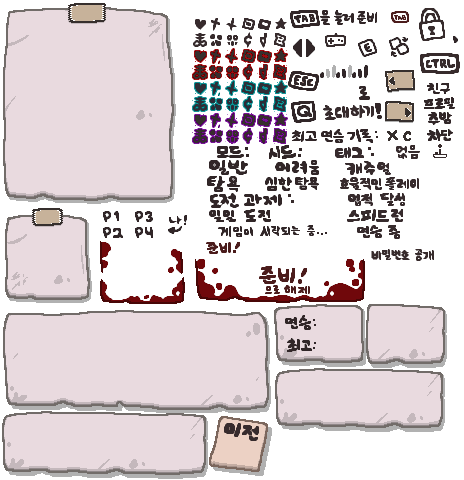 TAB 을 눌러 준비
TAB
E
ESC
CTRL
로
Q 초대하기!
친구
프로필
추방
차단
최고 연승 기록: X C
모드: 시드: 태그: 없음
일반 어려움 캐주얼
탐욕 심한 탐욕 효율적인 플레이
도전 과제: 업적 달성
일일 도전 스피드런
게임이 시작되는 중... 연승 중
P1 P3 나!
P2 P4
준비!
비밀번호 공개
준비!
으로 해제
연승:
최고:
이전